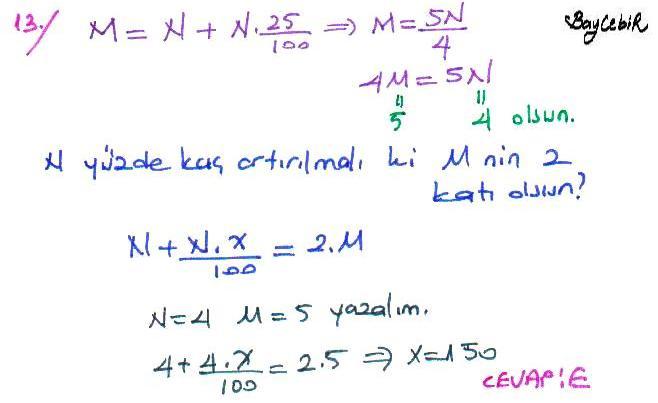 13.) M = N + N.25/100 ⇒ M = 5N/4
BayCebiR
4M = 5N
5 4 olsun.
N yüzde kaç artırılmalı ki M nin 2
katı olsun?
N + N.x/100 = 2.M
N=4 M=5 yazalım.
4 + 4.x/100 = 2.5 ⇒ x=150
CEVAP:E